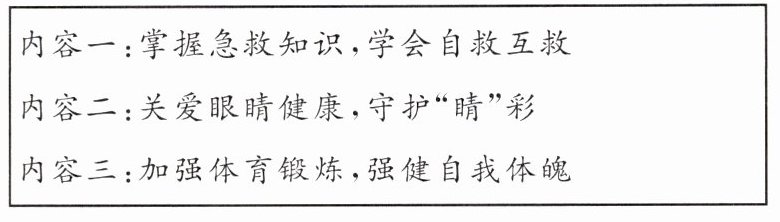 内容一:掌握急救知识,学会自救互救
内容二:关爱眼睛健康,守护“睛”彩
内容三:加强体育锻炼,强健自我体魄